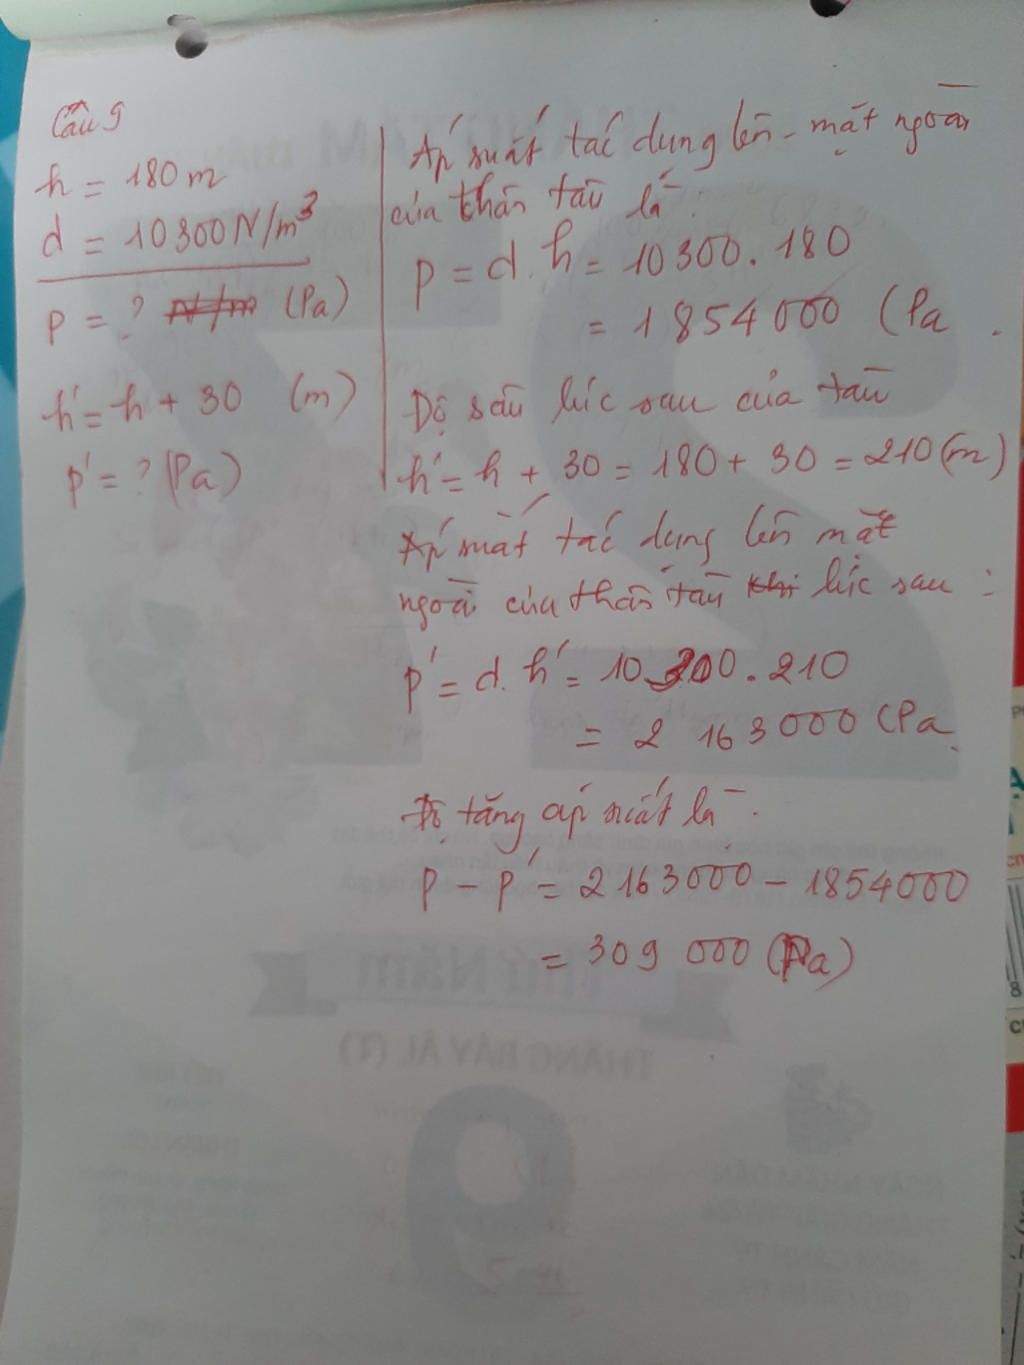 Câu 9
h = 180 m
d = 10300 N/m³
p = ? N/m (Pa)
h' = h + 30 (m)
p' = ? (Pa)
Áp suất tác dụng lên mặt ngoài
của thân tàu là :
p = d . h = 10300 . 180
= 1854000 (Pa
Độ sâu lúc sau của tàu
h' = h + 30 = 180 + 30 = 210 (m)
Áp suất tác dụng lên mặt
ngoài của thân tàu khi lúc sau :
p' = d . h' = 10300 . 210
= 2 163000 (Pa
Độ tăng áp suất là
p - p' = 2163000 - 1854000
= 309 000 (Pa)
THỨ NĂM
THÁNG BẢY ÂL (T)
9